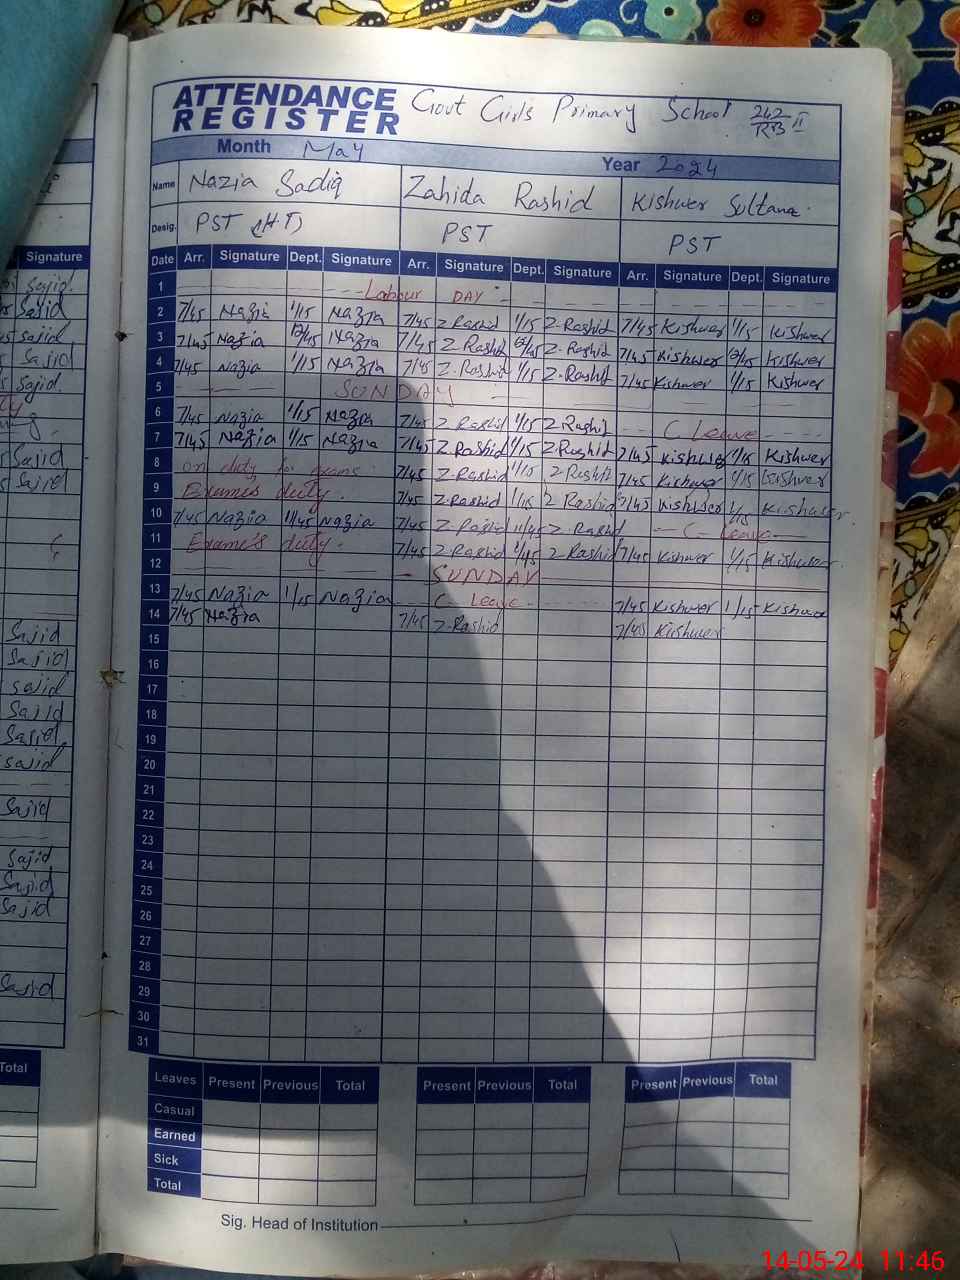 ATTENDANCE REGISTER Govt Girls Primary School 242/RB II
Month May Year 2024
Name Nazia Sadiq Zahida Rashid Kishwer Sultana
Desig. PST (HT) PST PST
Date Arr. Signature Dept. Signature Arr. Signature Dept. Signature Arr. Signature Dept. Signature
1 Labour DAY
2 7/45 Nazia 1/15 Nazia 7/45 Z Rashid 1/15 Z-Rashid 7/45 Kishwer 1/15 Kishwer
3 7/45 Nazia 12/45 Nazia 7/45 Z Rashid 12/45 Z-Rashid 7/45 Kishwer 12/45 Kishwer
4 7/45 Nazia 1/15 Nazia 7/45 Z-Rashid 1/15 Z-Rashid 7/45 Kishwer 1/15 Kishwer
5 SUNDAY
6 7/45 Nazia 1/15 Nazia 7/45 Z Rashid 1/15 Z Rashid C Leave
7 7/45 Nazia 1/15 Nazia 7/45 Z Rashid 1/15 Z-Rashid 7/45 Kishwer 1/15 Kishwer
8 on duty for exams 7/45 Z-Rashid 1/15 Z Rashid 7/45 Kishwer 1/15 Kishwer
9 Exame's duty. 7/45 Z-Rashid 1/15 Z Rashid 7/45 Kishwer 1/15 Kishwer
10 7/45 Nazia 11/45 Nazia 7/45 Z-Rashid 11/45 Z-Rashid C Leave
11 Exame's duty. 7/45 Z-Rashid 1/15 Z Rashid 7/45 Kishwer 1/15 Kishwer
12 SUNDAY
13 7/45 Nazia 1/15 Nazia C Leave 7/45 Kishwer 1/15 Kishwer
14 7/45 Nazia 7/45 Z-Rashid 7/45 Kishwer
15
16
17
18
19
20
21
22
23
24
25
26
27
28
29
30
31
Leaves Present Previous Total Present Previous Total Present Previous Total
Casual
Earned
Sick
Total
Sig. Head of Institution
Signature
Sajid
Sajid
Sajid
Sajid
Sajid
Sajid
Sajid
Sajid
Sajid
Sajid
Sajid
Sajid
Sajid
Sajid
Sajid
Sajid
Sajid
Sajid
Total
14-05-24 11:46